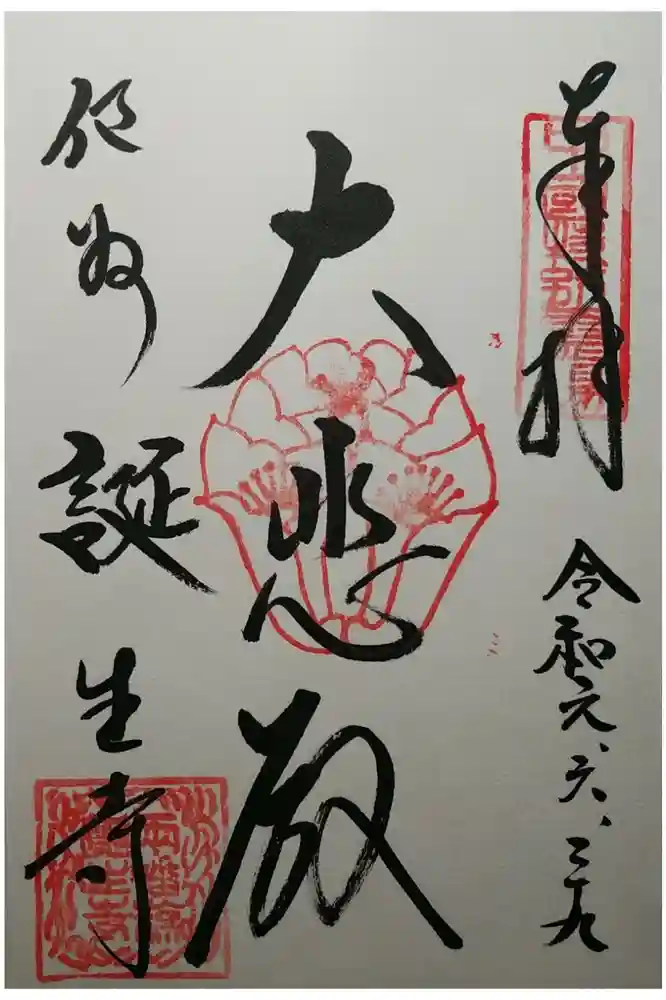 奉拝
令和元、六、二十九
大悲殿
作州 誕生寺